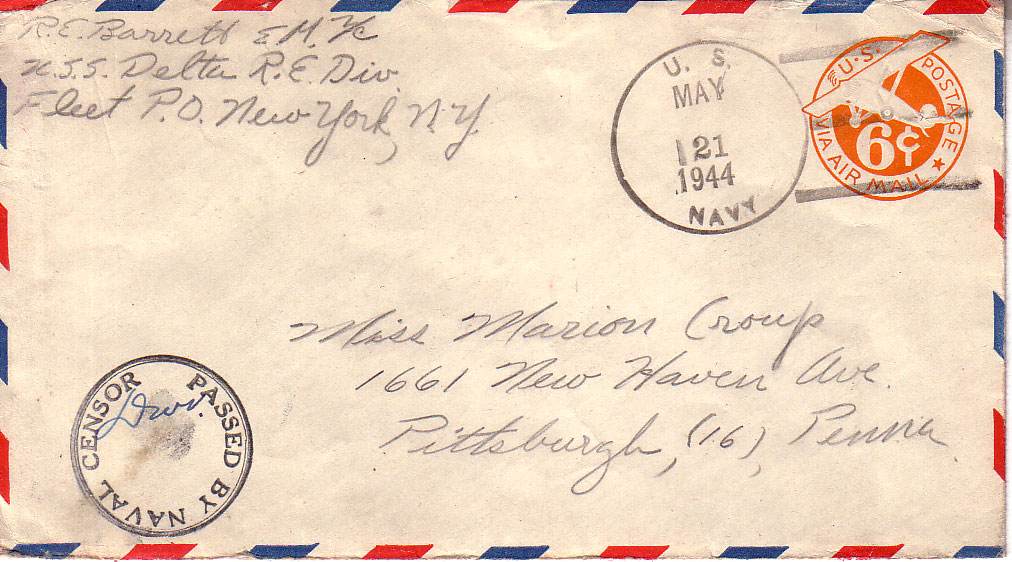 R.E. Barrett E.M. 1/c
U.S.S. Delta R.E. Div.
Fleet P.O. New York, N.Y.
U. S.
MAY
21
1944
NAVY
U.S. POSTAGE
6¢
VIA AIR MAIL
Miss Marion Croup
1661 New Haven Ave.
Pittsburgh, (16), Penna
PASSED BY NAVAL CENSOR